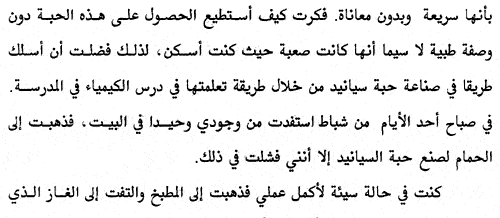 بأنها سريعة وبدون معاناة. فكرت كيف أستطيع الحصول على هذه الحبة دون
وصفة طبية لا سيما أنها كانت صعبة حيث كنت أسكن، لذلك فضلت أن أسلك
طريقا في صناعة حبة سيانيد من خلال طريقة تعلمتها في درس الكيمياء في المدرسة.
في صباح أحد الأيام من شباط استفدت من وجودي وحيدا في البيت، فذهبت إلى
الحمام لصنع حبة السيانيد إلا أنني فشلت في ذلك.
كنت في حالة سيئة لأكمل عملي فذهبت إلى المطبخ والتفت إلى الغاز الذي